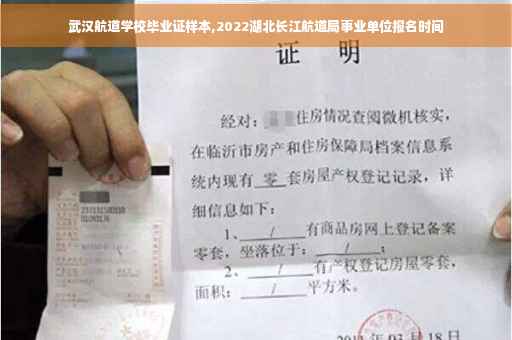 武汉航道学校毕业证样本,2022湖北长江航道局事业单位报名时间
证 明
经对: 住房情况查阅微机核实,
在临沂市房产和住房保障局档案信息系
统内现有 零 套房屋产权登记记录, 详
细信息如下:
1、 / 有商品房网上登记备案
零套, 坐落位于: / ;
2、 / 有产权登记房屋零套,
面积: / 平方米。
03月18日